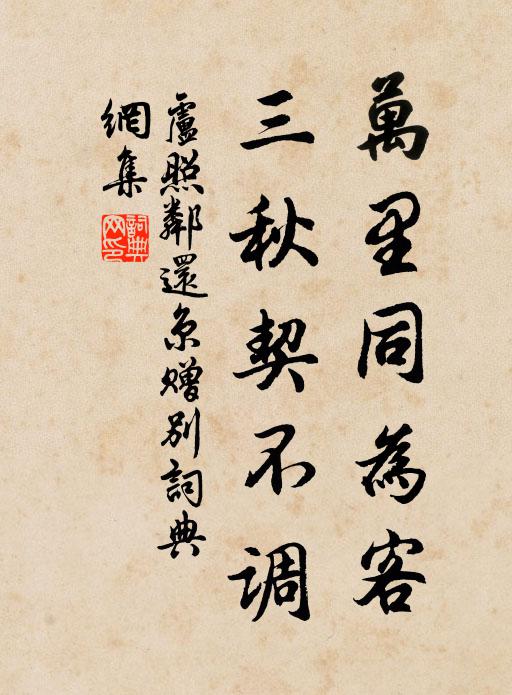 萬里同為客
三秋契不调
盧照鄰還京赠别詞典
網集
詞典
网印